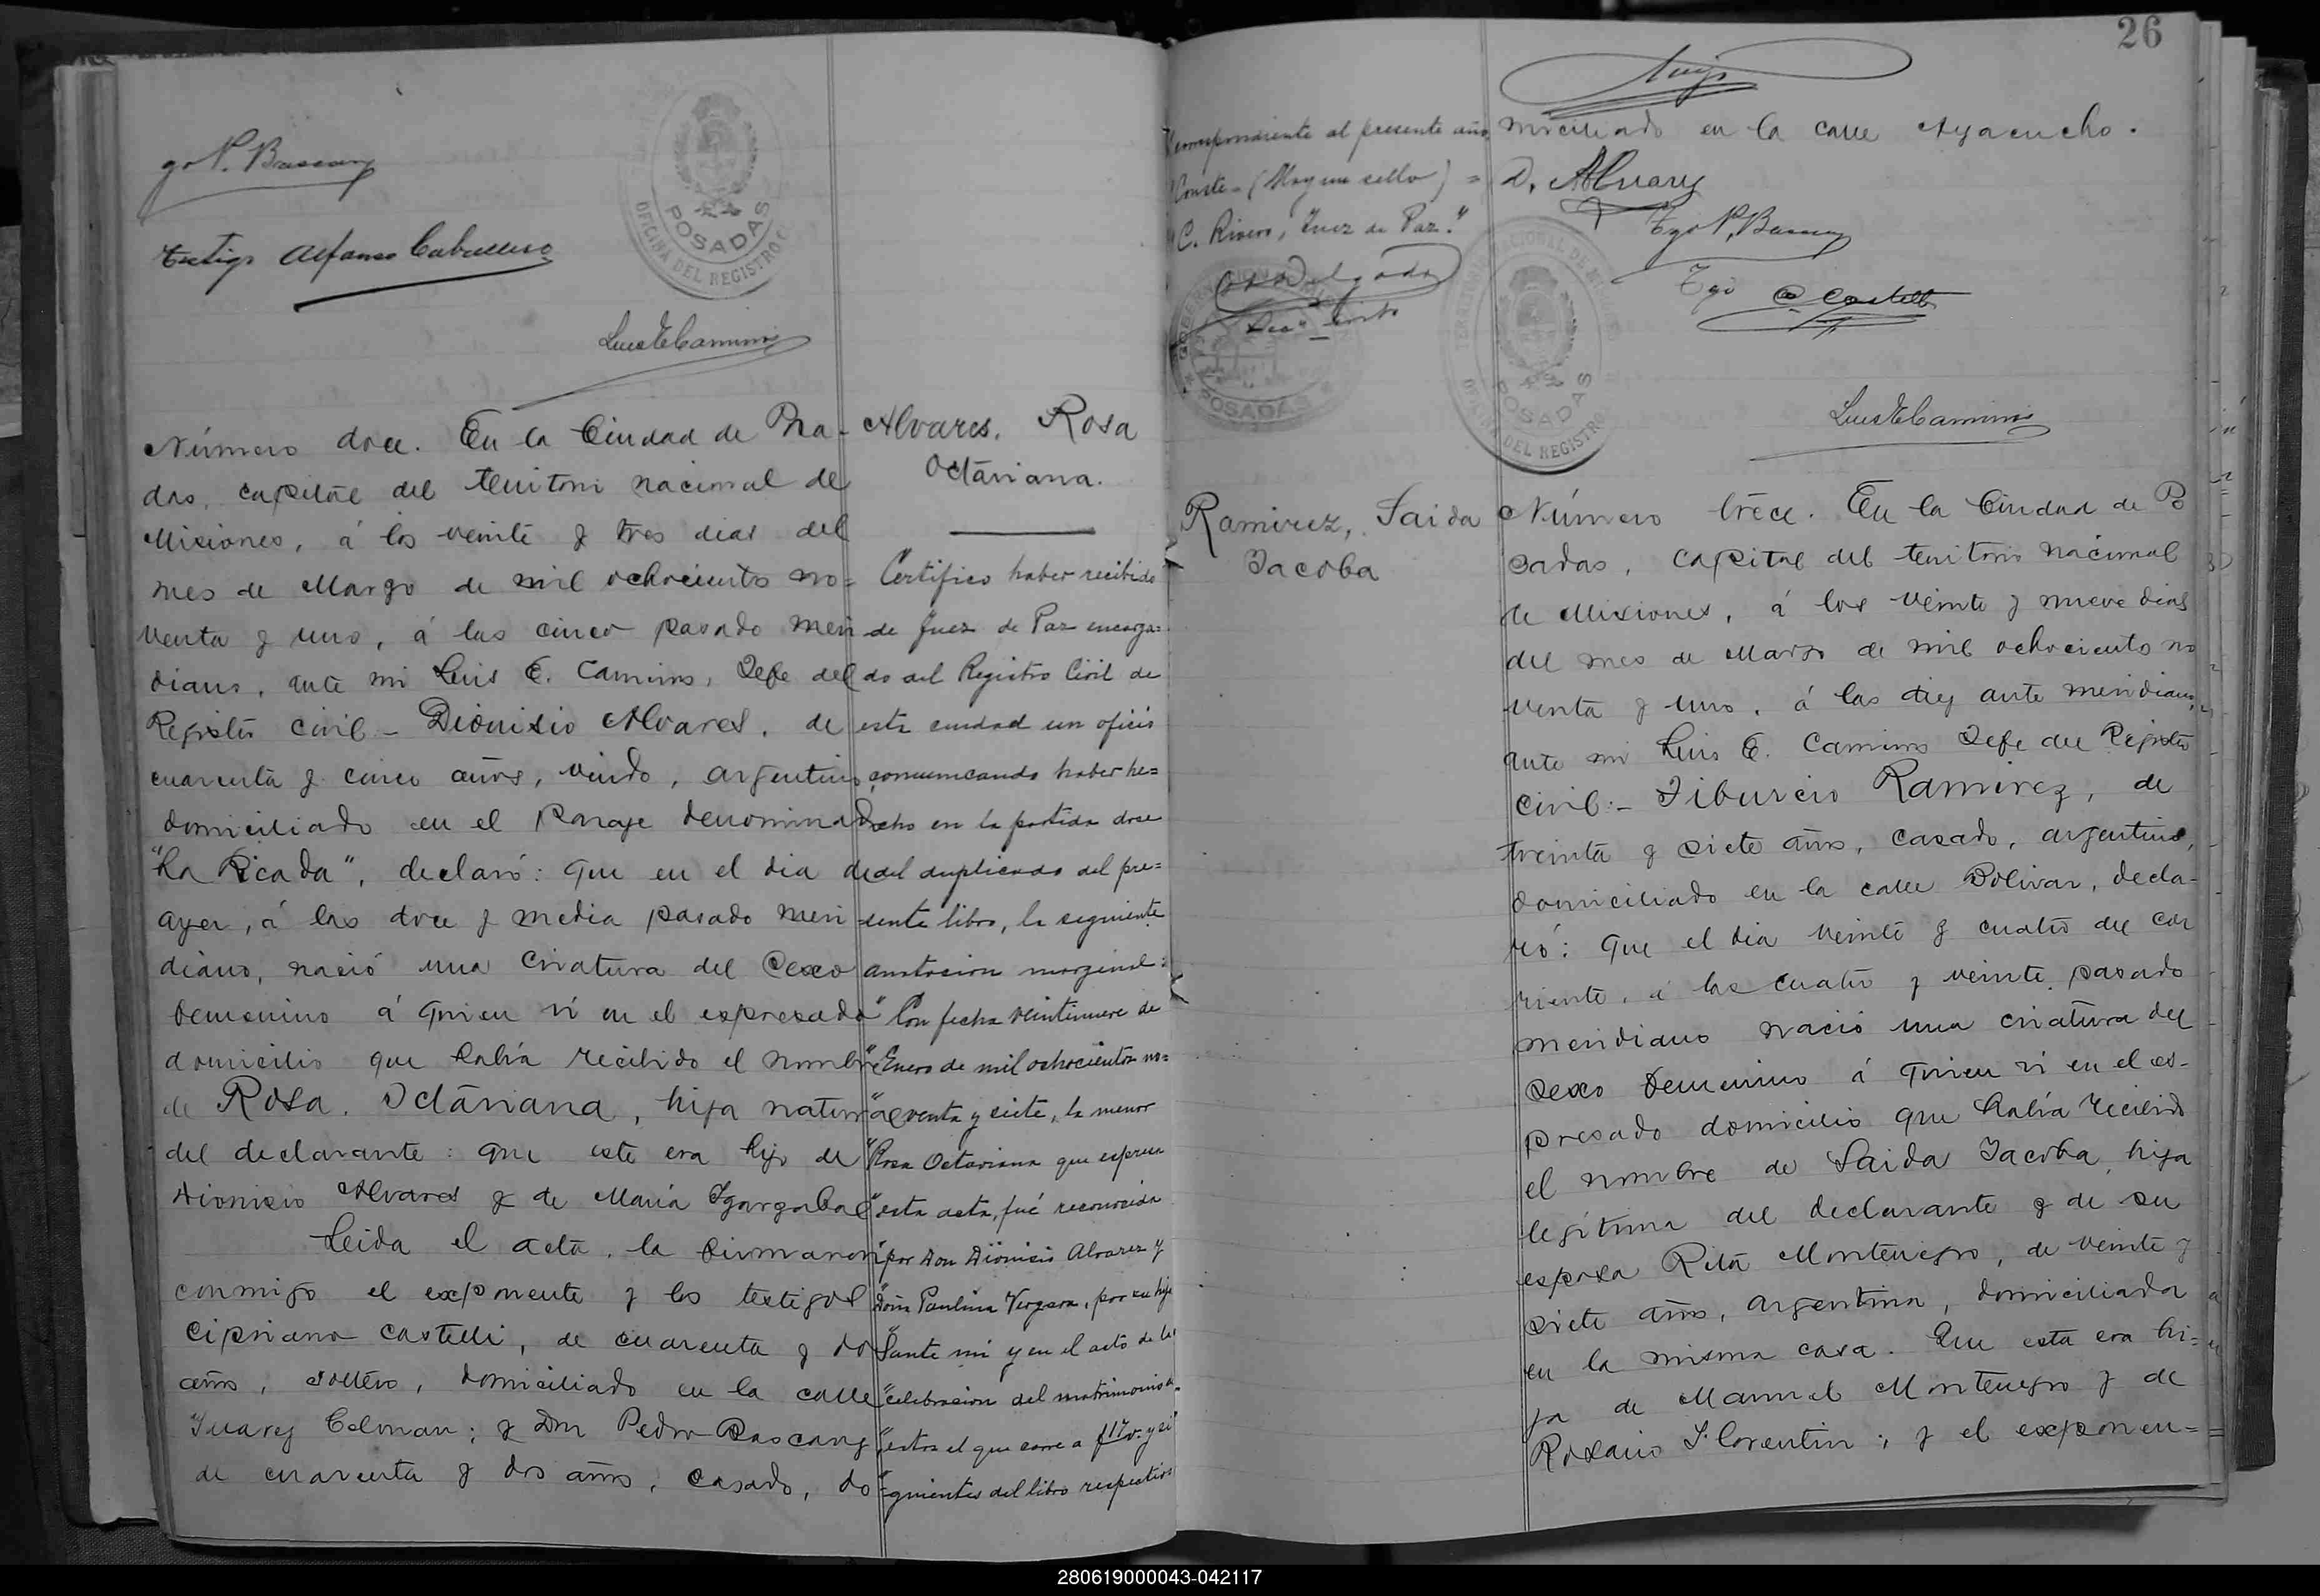 go P. Bascary
Testigo Alfonso Caballero
POSADAS
OFICINA DEL REGISTRO C
Luis E. Camino
Número doce. En la Ciudad de Po-
das, capital del territorio nacional de
Misiones, á los veinte y tres dias del
mes de Marzo de mil ochocientos no-
venta y uno, á las cinco pasado meri
diano, ante mi Luis E. Camino, Jefe del
Registro civil – Dionisio Alvares, de
cuarenta y cinco años, viudo, argentino,
domiciliado en el Paraje denominado
"La Picada", declaró: que en el dia de
ayer, á las doce y media pasado meri
diano, nació una criatura del sexo
femenino á quien ví en el expresado
domicilio que había recibido el nombre
de Rosa Octaviana, hija natural
del declarante: que este era hijo de
Dionisio Alvares y de María Ygarzabal
Leida el acta, la firmaron
conmigo el exponente y los testigos
Cipriano Castelli, de cuarenta y dos
años, soltero, domiciliado en la calle
Juarez Celman; y Dn Pedro Bascary
de cuarenta y dos años, casado, do
Alvares, Rosa
Octaviana.
Certifico haber recibido
de Juez de Paz encarga=
do del Registro Civil de
esta ciudad un oficio
comunicando haber he=
cho en la partida doce
del duplicado del pre=
sente libro, la siguiente
anotacion marginal:
"Con fecha veintinueve de
"Enero de mil ochocientos no=
"venta y siete, la menor
"Rosa Octaviana que espresa
"esta acta, fué reconocida
"por Don Dionisio Alvarez y
"Doña Paulina Vergara, por su hija
"ante mi y en el acto de la
"celebracion del matrimonio de
"estos el que corre a f 17v. y si
"=guientes del libro respectivo
26
"correspondiente al presente año
"Conste – (Hay un sello) =
"C. Rivero, Juez de Paz."
Delgado
POSADAS
miciliado en la calle Ayacucho.
D. Alvarez
Tgo P. Bascary
Tgo C Castelli
POSADAS
DEL REGISTRO
Luis E. Camino
Ramirez, Saida
Jacoba
Número trece. En la Ciudad de Po
sadas, capital del territorio nacional
de Misiones, á los veinte y nueve dias
del mes de Marzo de mil ochocientos no
venta y uno, á las diez ante meridiano,
ante mi Luis E. Camino Jefe del Registro
civil:– Tiburcio Ramirez, de
treinta y siete años, casado, argentino,
domiciliado en la calle Bolivar, decla-
ró: que el dia veinte y cuatro del cor
riente, á las cuatro y veinte pasado
meridiano nació una criatura del
sexo femenino á quien ví en el es-
presado domicilio que había recibido
el nombre de Saida Jacoba, hija
legítima del declarante y de su
esposa Rita Montenegro, de veinte y
siete años, argentina, domiciliada
en la misma casa. Que esta era hi=
ja de Manuel Montenegro y de
Rosario Florentin; y el exponen=
280619000043-042117